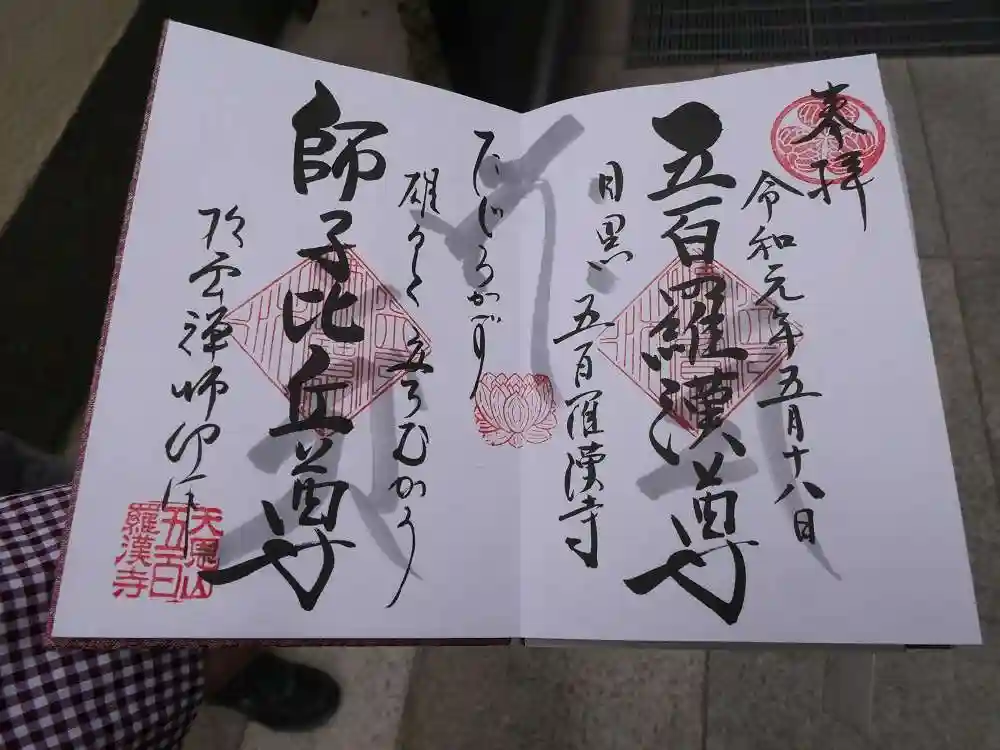 奉拝
令和元年五月十八日
五百羅漢尊
目黒 五百羅漢寺
たじろがず
雄々く立ちむかう
師子比丘尊
禅師
天恩山
五百
羅漢寺